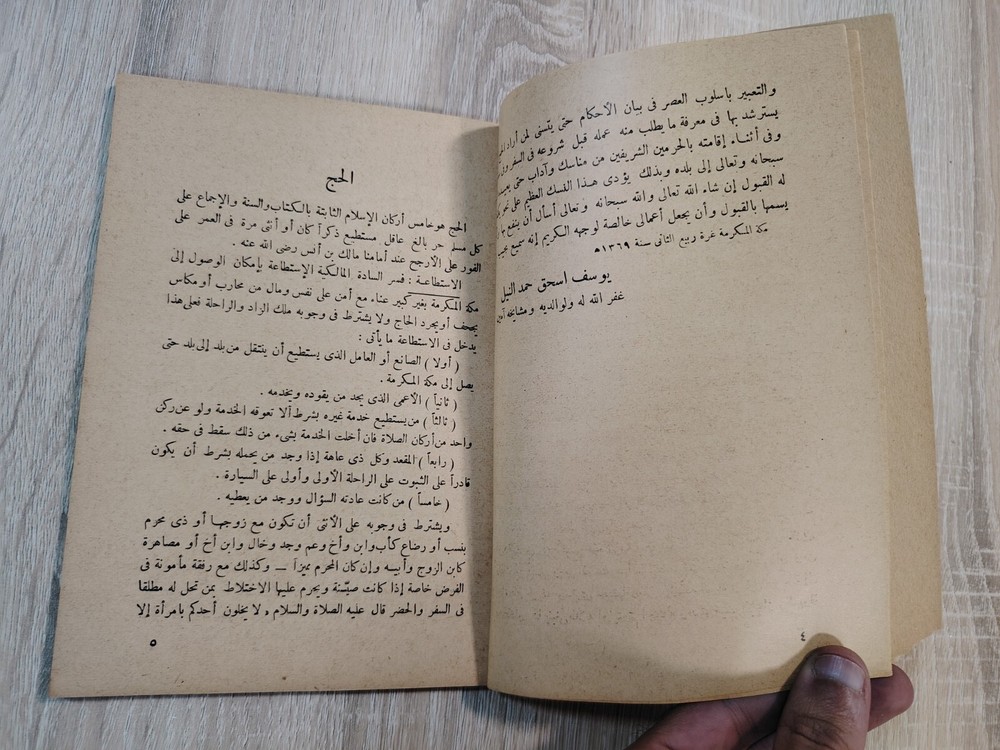 والتعبير باسلوب العصر فى بيان الأحكام حتى يتسنى لمن أراد
يسترشد بها فى معرفة ما يطلب منه عمله قبل شروعه فى السفر
وفى أثناء إقامته بالحرمين الشريفين من مناسك وآداب حتى
سبحانه وتعالى إلى بلده وبذلك يؤدى هذا النسك العظيم على
له القبول إن شاء الله تعالى والله سبحانه وتعالى أسأل أن ينفع بها
يسمها بالقبول وأن يجعل أعمالى خالصة لوجهه الكريم إنه سميع
مكة المكرمة غرة ربيع الثانى سنة ١٣٦٩ه
يوسف اسحق حمد النيل
غفر الله له ولوالديه ومشايخه
٤
الحج
الحج هو خامس أركان الإسلام الثابتة بالكتاب والسنة والإجماع على
كل مسلم حر بالغ عاقل مستطيع ذكراً كان أو أنثى مرة فى العمر على
الفور على الأرجح عند أمامنا مالك بن أنس رضى الله عنه .
الاستطاعة : فسر السادة المالكية الإستطاعة بإمكان الوصول إلى
مكة المكرمة بغير كبير عناء مع أمن على نفس ومال من محارب أو مكاس
يجحف أو يجرد الحاج ولا يشترط فى وجوبه ملك الزاد والراحلة فعلى هذا
يدخل فى الاستطاعة ما يأتى :
( أولا ) الصانع أو العامل الذى يستطيع أن ينتقل من بلد إلى بلد حتى
يصل إلى مكة المكرمة .
( ثانياً ) الأعمى الذى يجد من يقوده ويخدمه .
( ثالثاً ) من يستطيع خدمة غيره بشرط ألا تعوقه الخدمة ولو عن ركن
واحد من أركان الصلاة فان أخلت الخدمة بشىء من ذلك سقط فى حقه .
( رابعاً ) المقعد وكل ذى عاهة إذا وجد من يحمله بشرط أن يكون
قادراً على الثبوت على الراحلة الأولى وأولى على السيارة .
( خامساً ) من كانت عادته السؤال ووجد من يعطيه .
ويشترط فى وجوبه على الأنثى أن تكون مع زوجها أو ذى محرم
بنسب أو رضاع كأب وابن وأخ وعم وجد وخال وابن أخ أو مصاهرة
كابن الزوج وأبيه وإن كان المحرم مميزاً — وكذلك مع رفقة مأمونة فى
الفرض خاصة إذا كانت صيّنة ويحرم عليها الاختلاط بمن تحل له مطلقا
فى السفر والحضر قال عليه الصلاة والسلام « لا يخلون أحدكم بامرأة إلا
٥